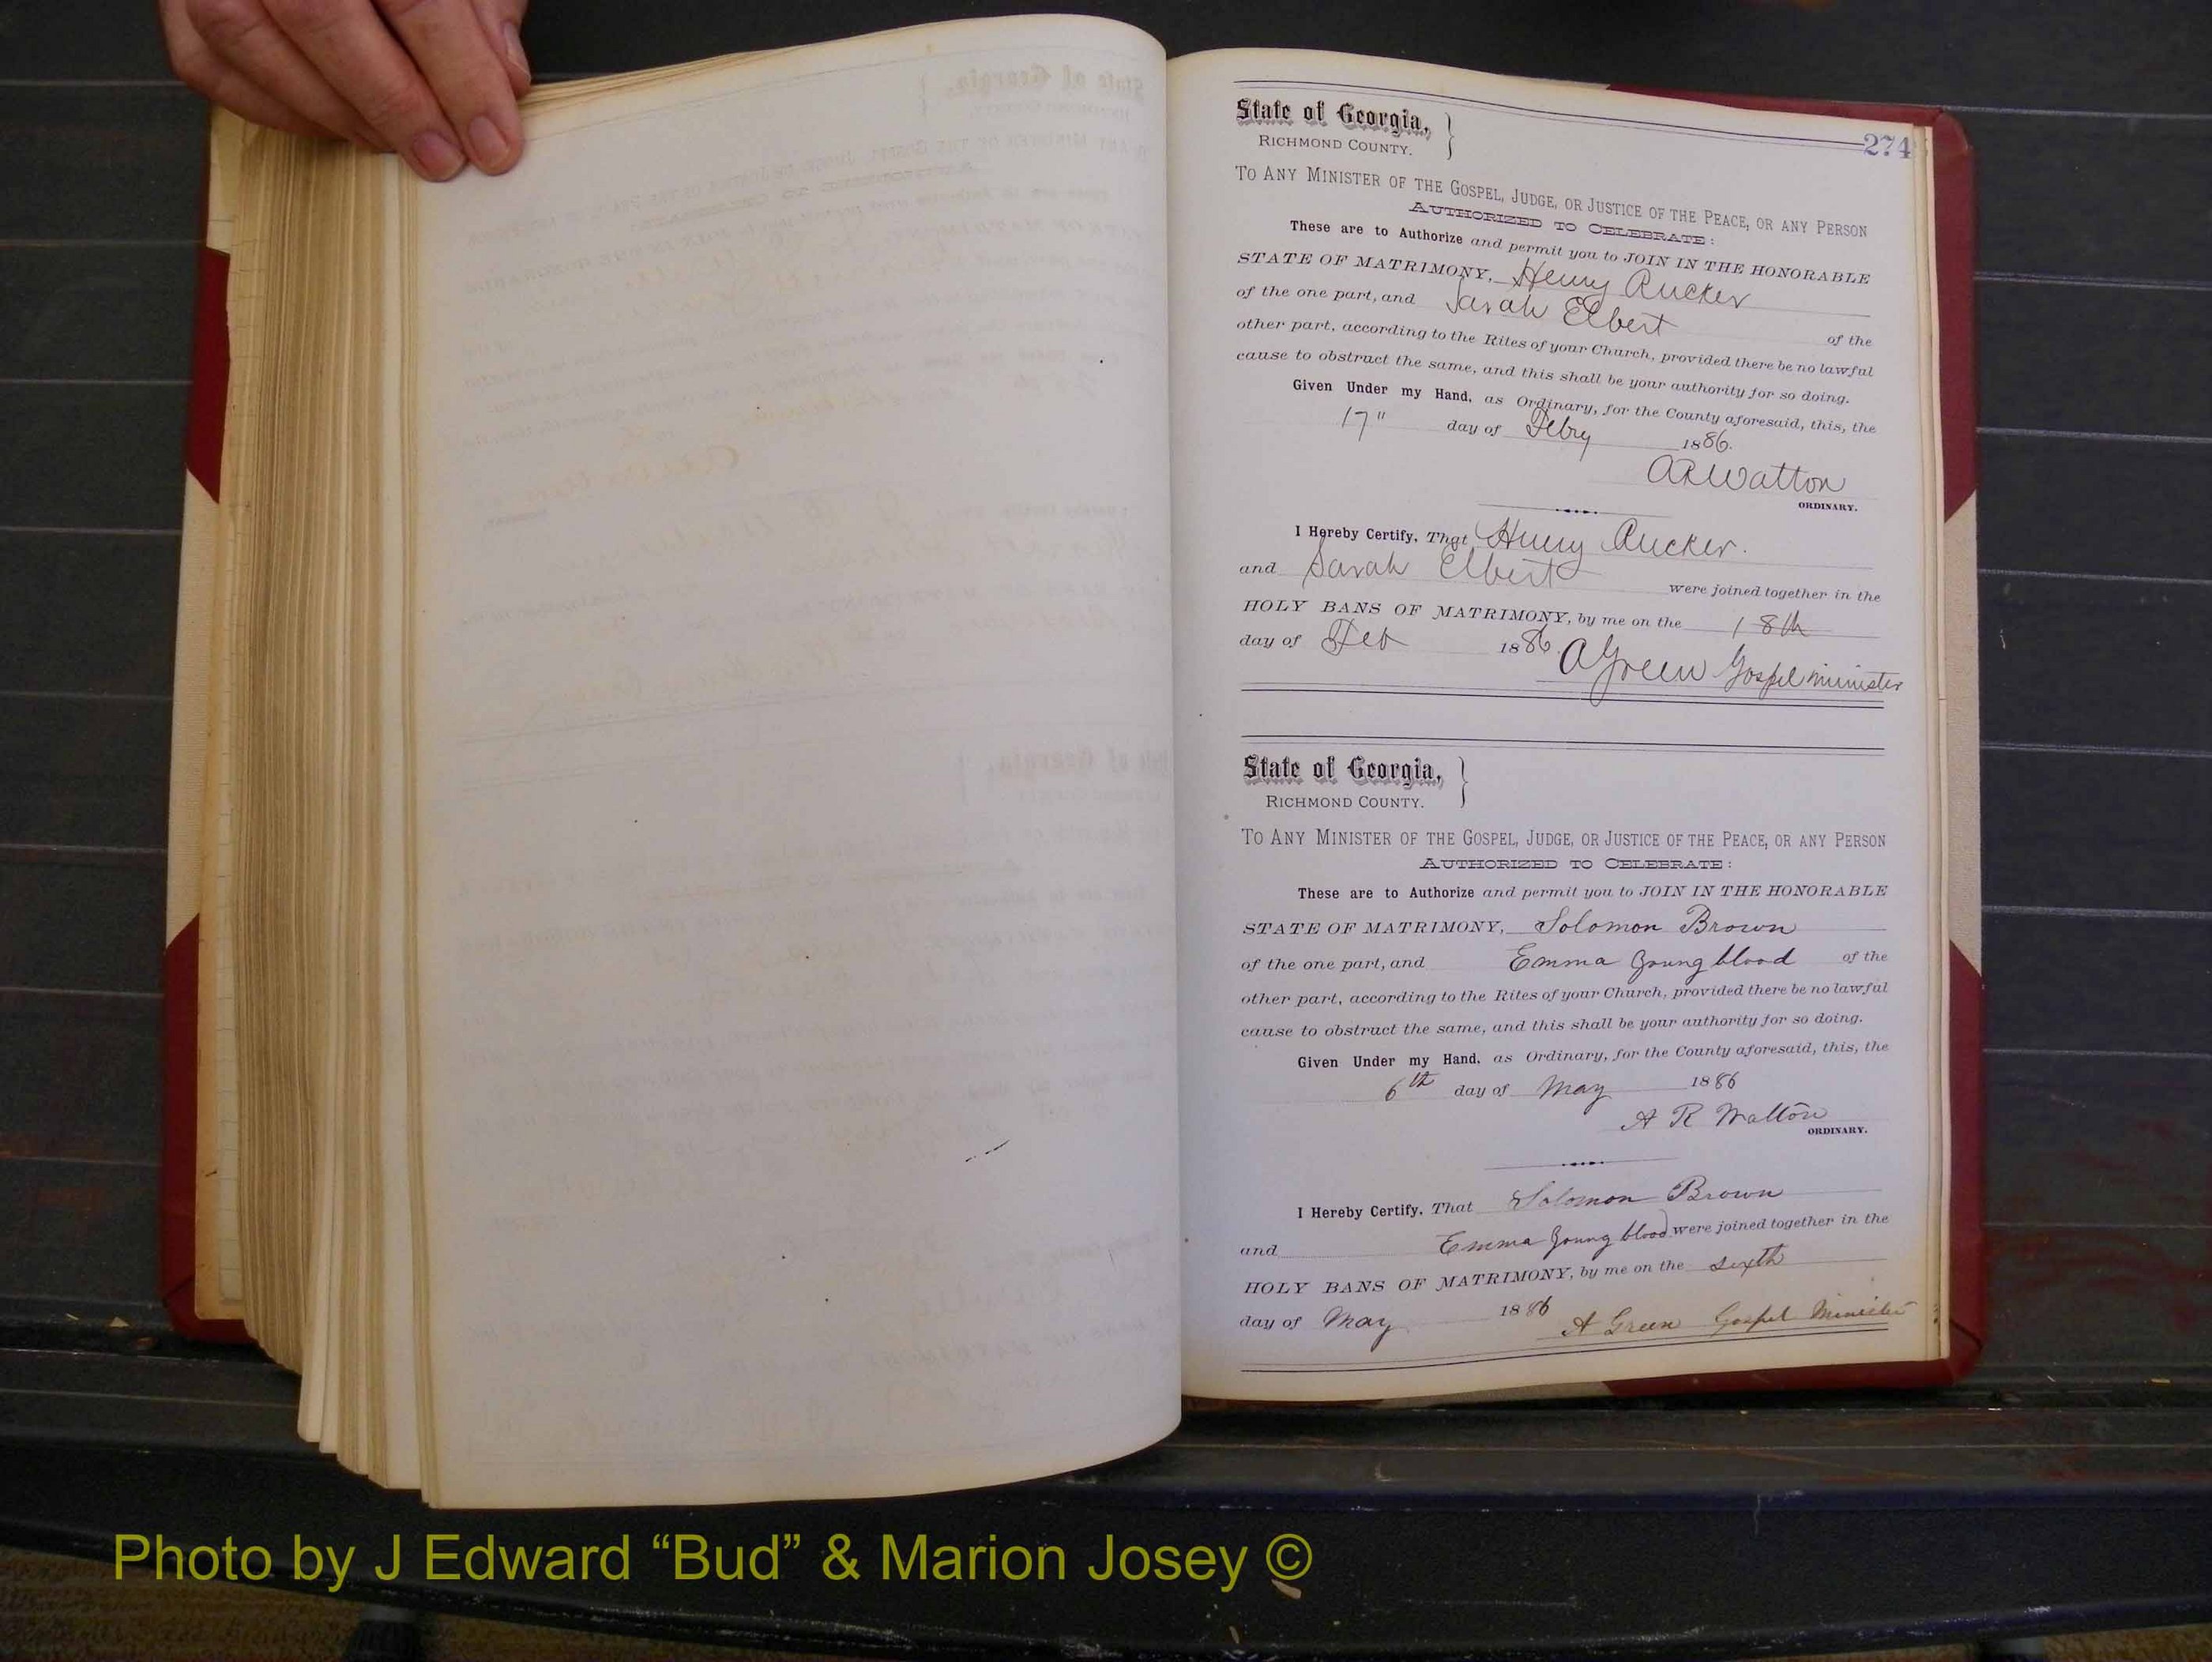 274
State of Georgia, }
RICHMOND COUNTY.
TO ANY MINISTER OF THE GOSPEL, JUDGE, OR JUSTICE OF THE PEACE, OR ANY PERSON
AUTHORIZED TO CELEBRATE:
These are to Authorize and permit you to JOIN IN THE HONORABLE
STATE OF MATRIMONY, Henry Rucker
of the one part, and Sarah Elbert of the
other part, according to the Rites of your Church, provided there be no lawful
cause to obstruct the same, and this shall be your authority for so doing.
Given Under my Hand, as Ordinary, for the County aforesaid, this, the
17" day of Febry 1886.
A R Walton
ORDINARY.
I Hereby Certify, That Henry Rucker.
and Sarah Elbert were joined together in the
HOLY BANS OF MATRIMONY, by me on the 18th
day of Feb 1886. A Green Gospel minister
State of Georgia, }
RICHMOND COUNTY.
TO ANY MINISTER OF THE GOSPEL, JUDGE, OR JUSTICE OF THE PEACE, OR ANY PERSON
AUTHORIZED TO CELEBRATE:
These are to Authorize and permit you to JOIN IN THE HONORABLE
STATE OF MATRIMONY, Solomon Brown
of the one part, and Emma Young blood of the
other part, according to the Rites of your Church, provided there be no lawful
cause to obstruct the same, and this shall be your authority for so doing.
Given Under my Hand, as Ordinary, for the County aforesaid, this, the
6th day of May 1886
A R Walton
ORDINARY.
I Hereby Certify, That Solomon Brown
and Emma Young blood were joined together in the
HOLY BANS OF MATRIMONY, by me on the sixth
day of May 1886 A Green Gospel Minister
Photo by J Edward “Bud” & Marion Josey ©